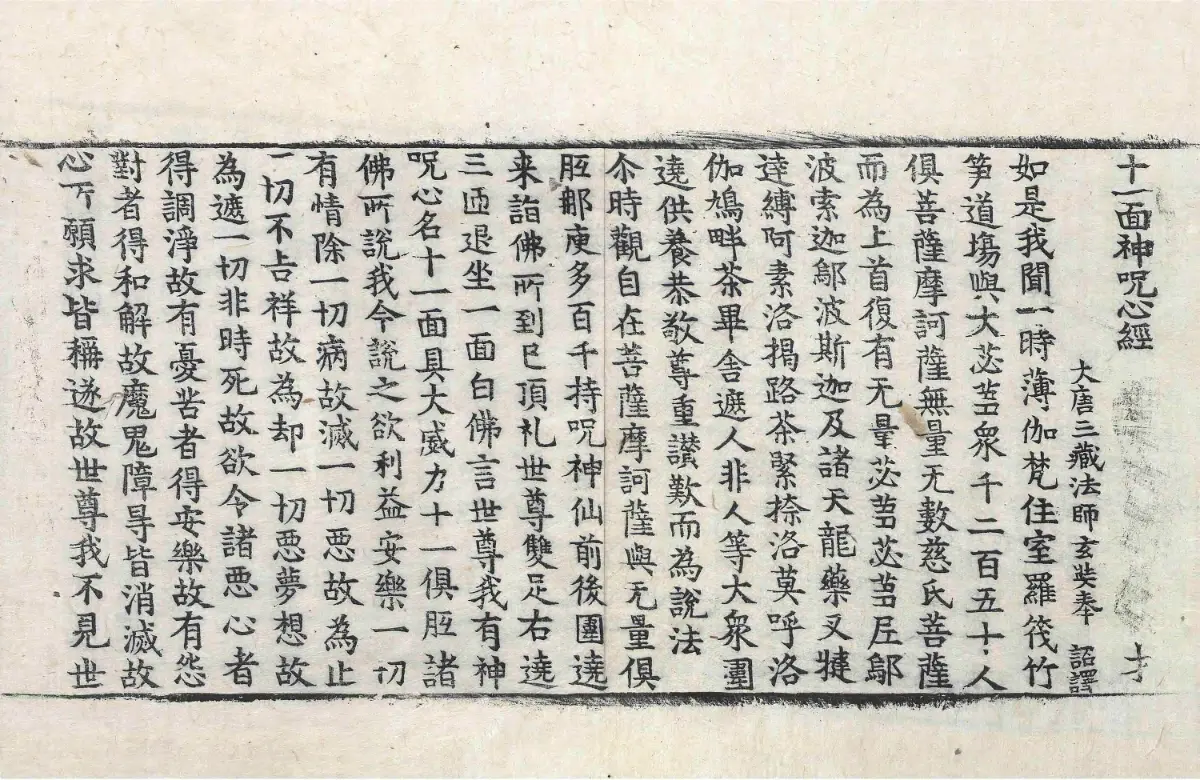 十一面神呪心經 才
大唐三藏法師玄奘奉 詔譯
如是我聞一時薄伽梵住室羅筏竹
笋道場與大苾芻衆千二百五十人
俱菩薩摩訶薩無量无數慈氏菩薩
而為上首復有无量苾芻苾芻尼鄔
波索迦鄔波斯迦及諸天龍藥叉揵
達縛阿素洛揭路茶緊捺洛莫呼洛
伽鳩畔茶畢舍遮人非人等大衆圍
遶供養恭敬尊重讃歎而為說法
尒時觀自在菩薩摩訶薩與无量俱
胝那庾多百千持呪神仙前後圍遶
来詣佛所到已頂礼世尊雙足右遶
三匝退坐一面白佛言世尊我有神
呪心名十一面具大威力十一俱胝諸
佛所說我今說之欲利益安樂一切
有情除一切病故滅一切惡故為止
一切不吉祥故為却一切惡夢想故
為遮一切非時死故欲令諸惡心者
得調淨故有憂苦者得安樂故有怨
對者得和解故魔鬼障㝵皆消滅故
心所願求皆稱遂故世尊我不見世